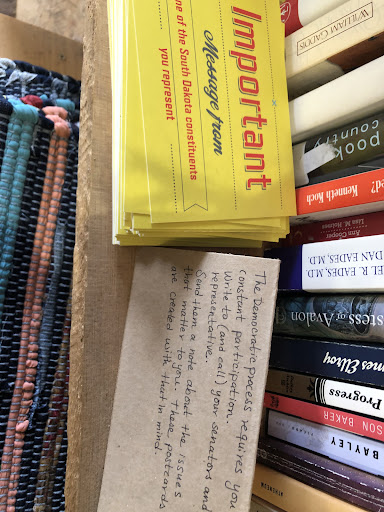 Important
Message from
one of the South Dakota constituents
you represent
The Democratic process requires you
constant participation.
Write to (and call) your senators and
representative.
Send them a note about the issues
that matter to you. These postcards
are created with that in mind.
WILLIAM GADDIS
pook
country
ed? Kenneth Koch
Ann Cooper
Lisa M. Holmes
EL R. EADES, M.D.
DAN EADES, M.D.
stess of Avalon
mes Ellroy
Progress
SON BAKER
BAYLEY
ATKINSON